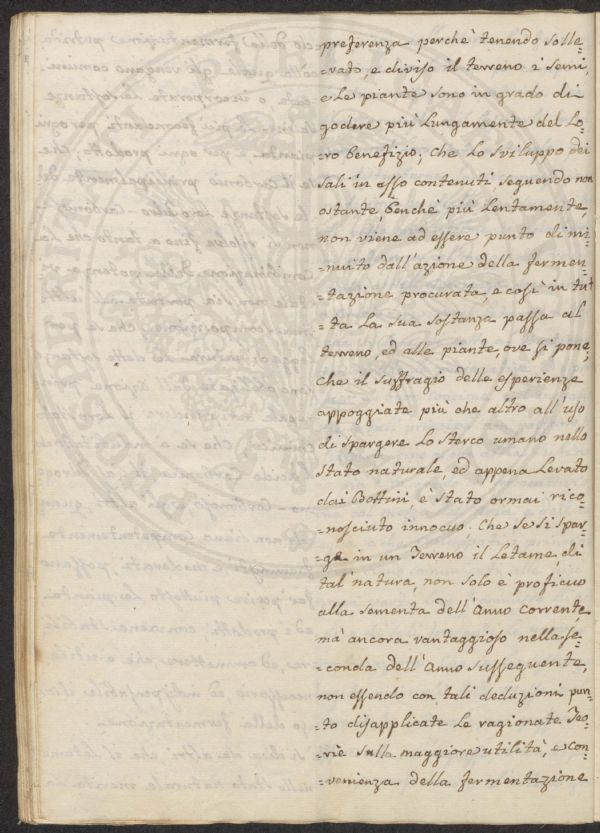 preferenza perchè tenendo solle-
-vato, e diviso il terreno i semi
e le piante sono in grado di
godere più lungamente del lo-
-ro benefizio; Che lo sviluppo dei
sali in asso contenuti seguendo non
ostante, benchè più lentamente,
non viene ad essere punto dimi-
-nuito dall'azione della fermen-
-tazione procurata, e così in tut-
-ta la sua sostanza passa al
terreno, ed alle piante, ove si pone,
Che il suffragio delle esperienze
appoggiate più che altro all'uso
di spargere lo sterco umano nello
stato naturale, ed appena levato
dai Bottini, è stato ormai rico-
-nosciuto innocuo; Che se si spar-
-ge in un Terreno il Letame, di
tal natura, non solo è proficuo
alla sementa dell'Anno corrente,
mà ancora vantaggioso nella se-
-conda dell'Anno susseguente,
non essendo con tali deduzioni pun-
-to disapplicate le ragionate Teo-
-rie sulla maggiore utilità, e con-
-venienza della fermentazione